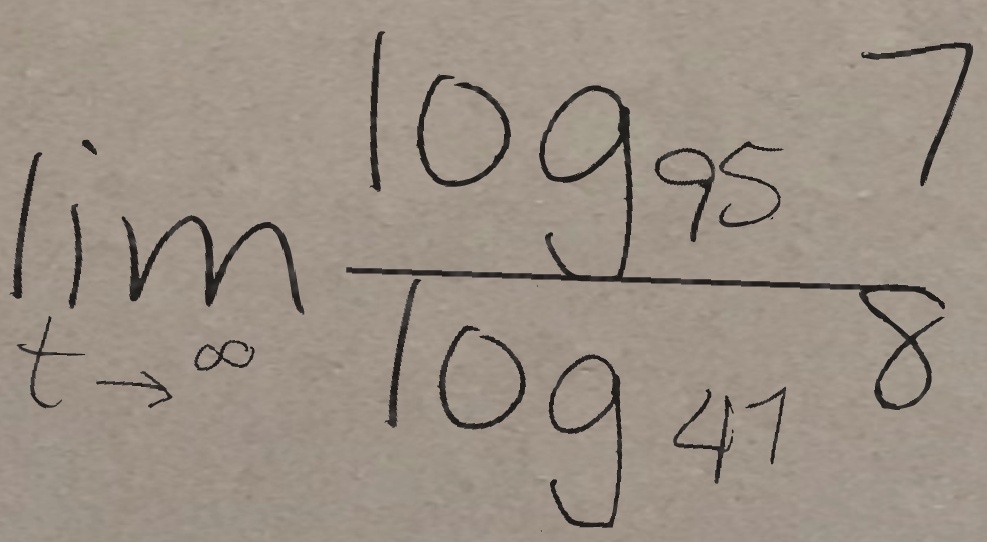 \lim_{t \to \infty} \frac{\log_{95} 7}{\log_{41} 8}